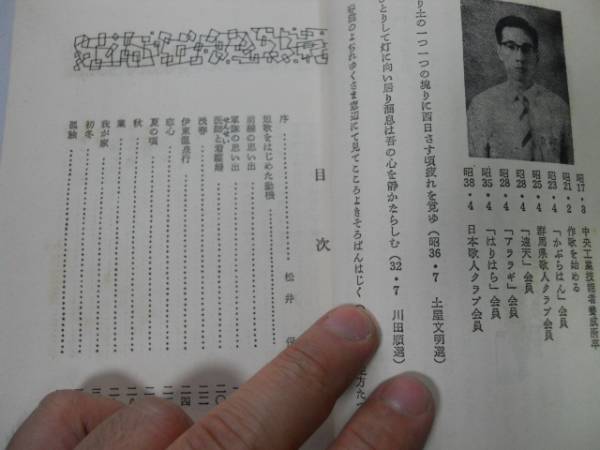 昭17・3 中央工業技術者養成所卒
昭21・2 作歌を始める
昭23・4 「かぶらはん」会員
昭25・4 群馬県歌人クラブ会員
昭28・4 「遠天」会員
昭28・4 「アララギ」会員
昭35・4 「はりはら」会員
昭38・4 日本歌人クラブ会員
り土の一つ一つの塊りに西日さす頃疲れを覚ゆ(昭36・7 土屋文明選)
とりして灯に向い居り湯息は吾の心を静かたらしむ(32・7 川田順選)
さま窓辺にて見てこころよきそろばんはじく
目次
序 松井
短歌をはじめた動機
前線の思い出
軍隊の思い出
医師と看護婦
せんせい
浅春
伊東温泉行
恋心
夏の頃
秋
菫
我が家
初冬
孤独